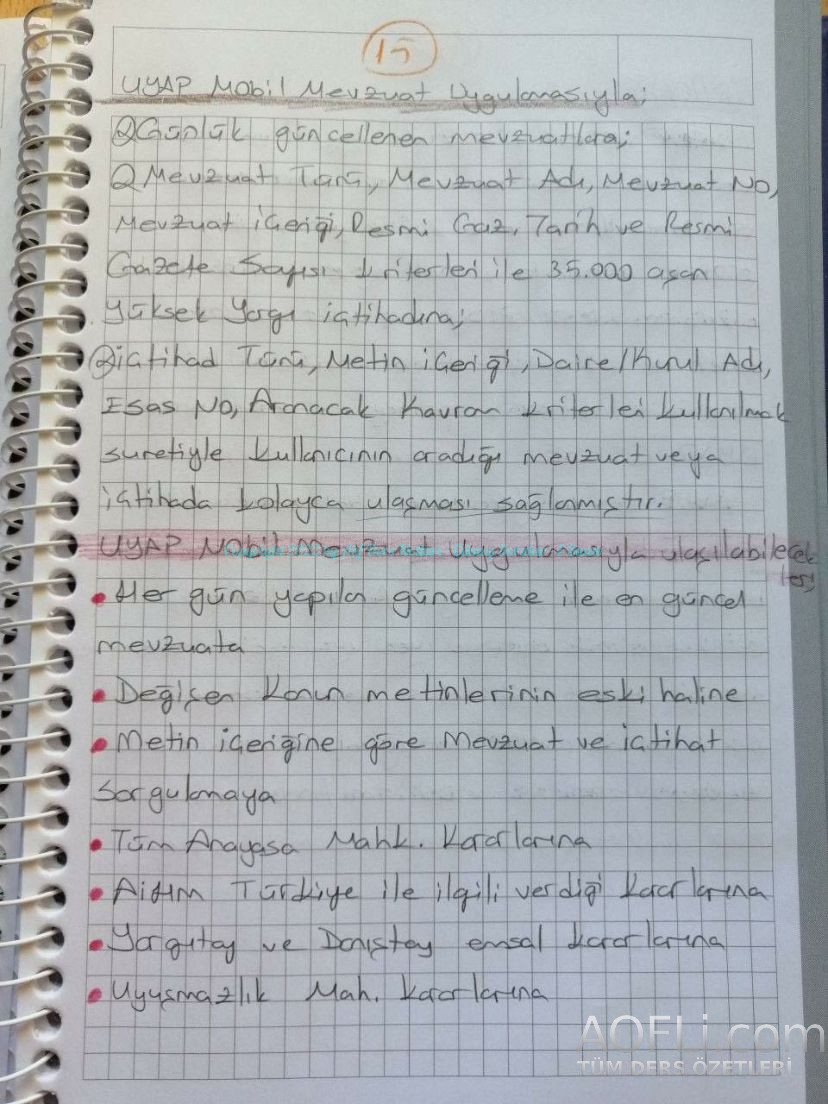 15
UYAP Mobil Mevzuat Uygulamasıyla;
Günlük güncellenen mevzuatlara;
Mevzuat Türü, Mevzuat Adı, Mevzuat No,
Mevzuat içeriği, Resmi Gaz. Tarih ve Resmi
Gazete Sayısı kriterleri ile 35.000 aşan
Yüksek Yargı içtihadına;
içtihad Türü, Metin içeriği, Daire/Kurul Adı,
Esas No, Aranacak Kavram kriterleri kullanılmak
suretiyle kullanıcının aradığı mevzuat veya
içtihada kolayca ulaşması sağlanmıştır.
UYAP Mobil Mevzuat Uygulamasıyla ulaşılabilecek
ler;
• Her gün yapılan güncelleme ile en güncel
mevzuata
• Değişen Kanun metinlerinin eski haline
• Metin içeriğine göre Mevzuat ve içtihat
Sorgulamaya
• Tüm Anayasa Mahk. Kararlarına
• AİHM Türkiye ile ilgili verdiği kararlarına
• Yargıtay ve Danıştay emsal kararlarına
• Uyuşmazlık Mah. Kararlarına
AOFLi.com
TÜM DERS ÖZETLERİ